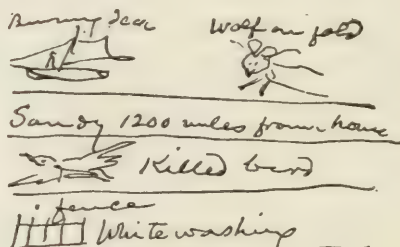 Burning deck Wolf on fold
Sandy 1200 miles from house
Killed bird
fence
Whitewashing